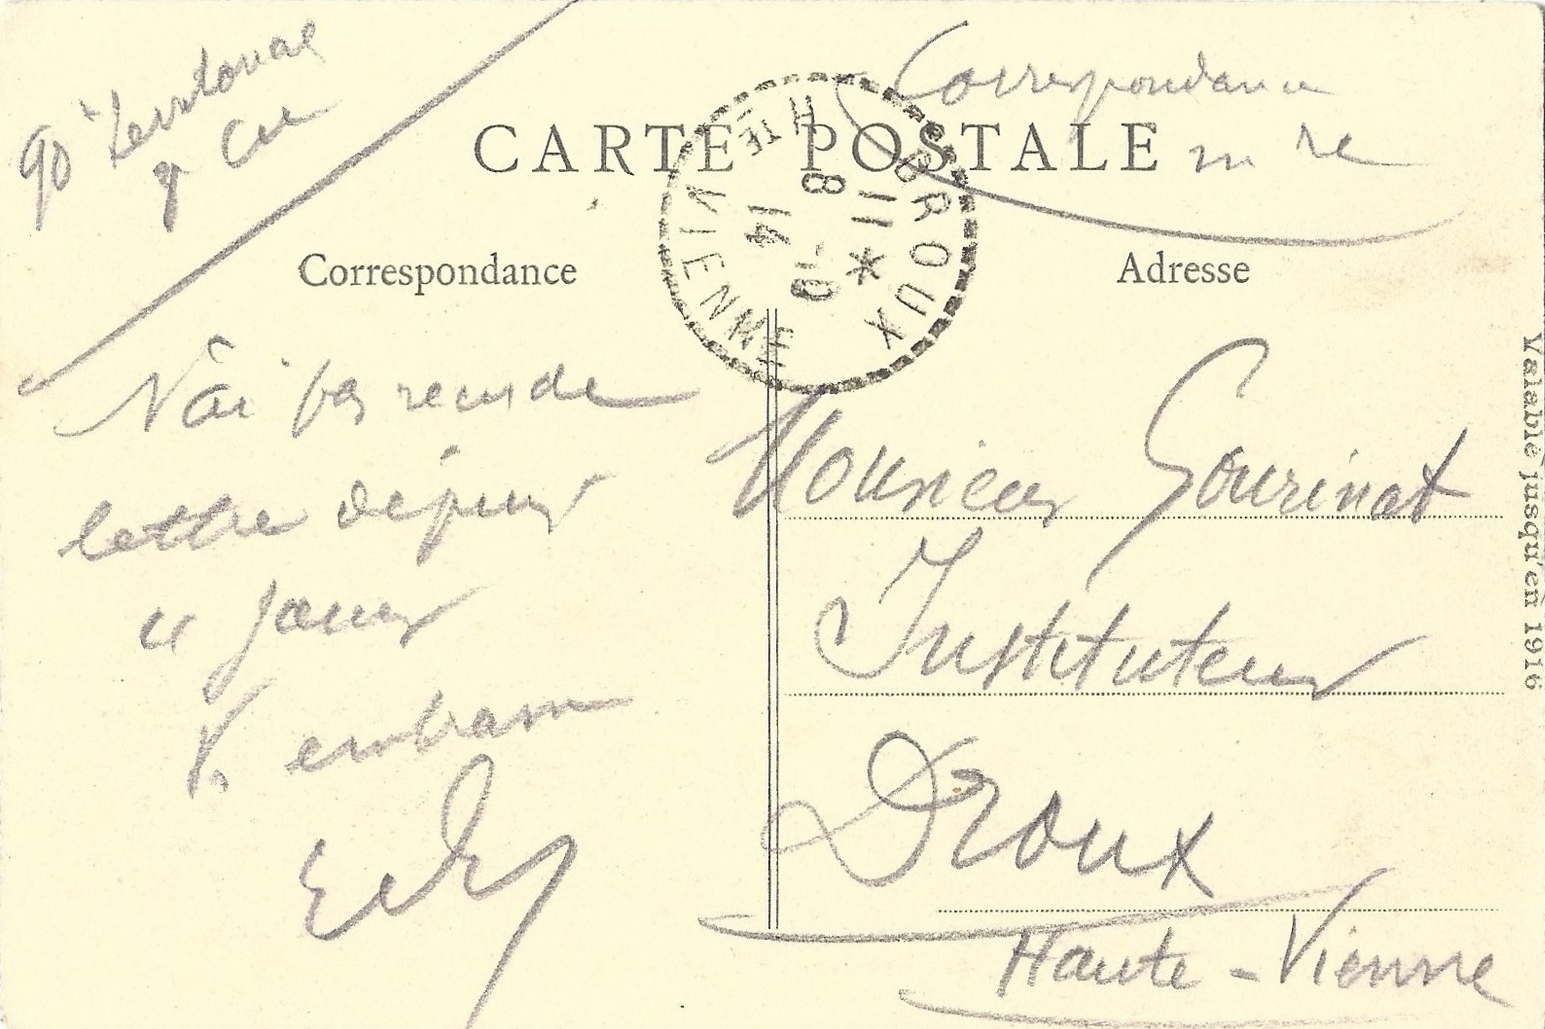 90e Territorial
9e Cie
Correspondance
CARTE POSTALE
Correspondance
Adresse
DROUX
HTE VIENNE
11 * 8
1-9
14
N'ai pas reçu de
lettre depuis
jours
embrasse
Monsieur Gourinat
Instituteur
Droux
Haute-Vienne
Valable jusqu'en 1916